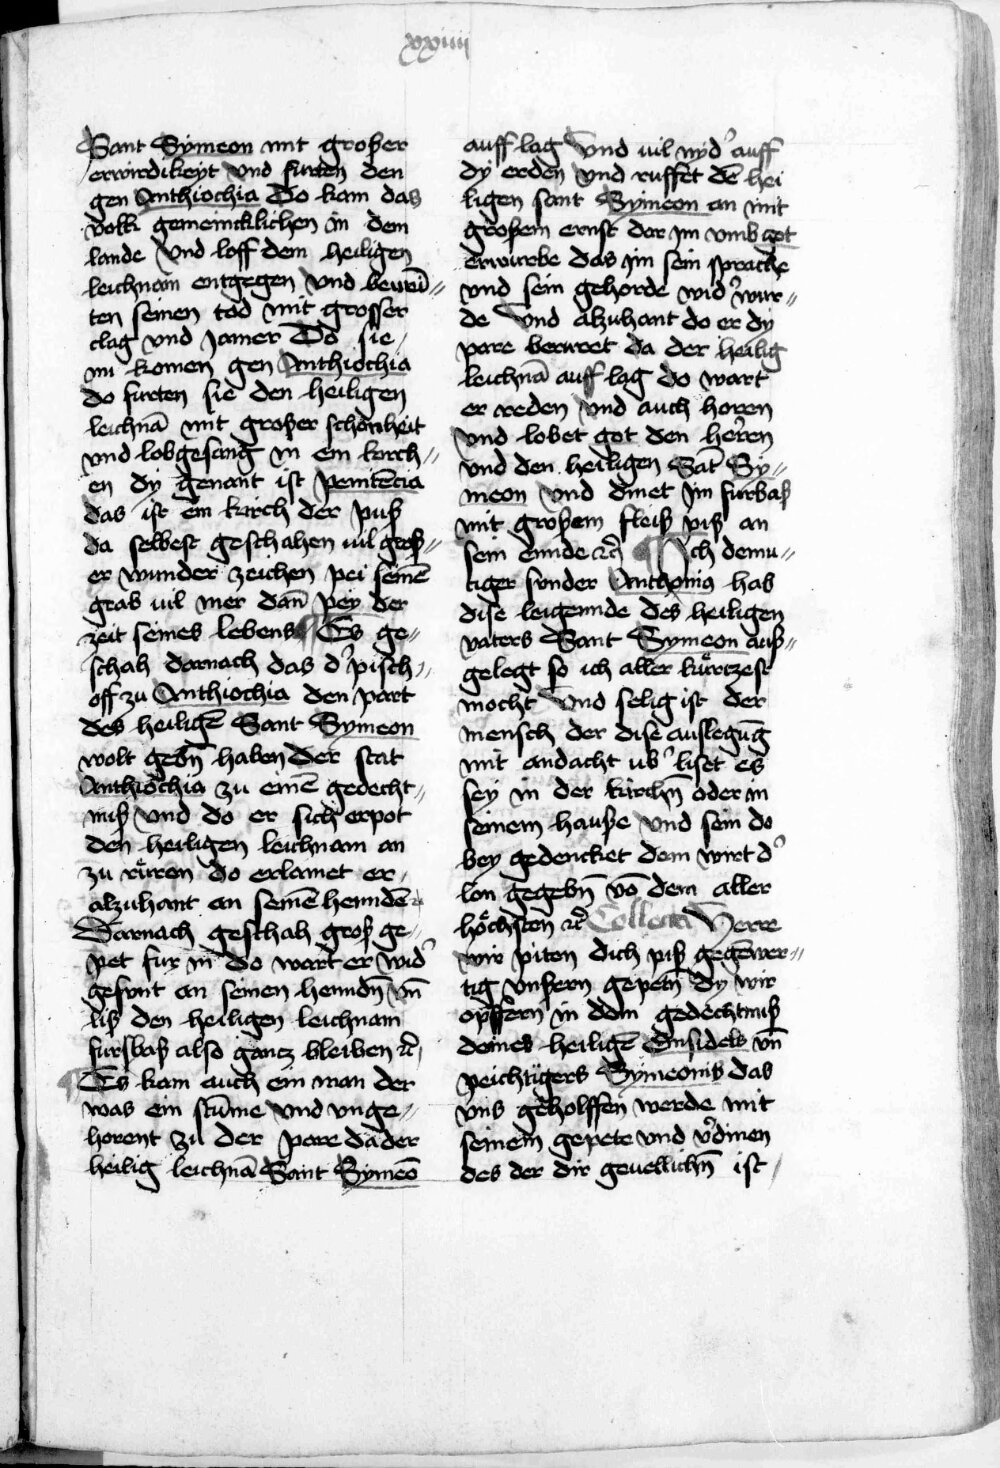 xxiiii
Sant Symeon mit großer
erwirdikeyt vnd furten den
gen Anthiochia Do kam das
volk gemeincklichen in dem
lande vnd loff dem heiligen
leichnam entgegen vnd bewai͞¬
ten seinen tod mit grosser
clag vnd Jamer Do sie
nu komen gen Anthiochia
do furten sie den heiligen
leichna͞ mit großer schonheit
vnd lobgesang in ein kirch¬
en dy genant ist penite͞cia
das ist ein kirch der puß
da selbest geschahen uil groß¬
er wunder zeichen pei seine͞
grab uil mer dan͞ pey der
zeit seines lebens Es ge¬
schah darnach das d' pisch¬
off zu Anthiochia den part
des heilige͞ Sant Symeon
wolt gebn͞ haben der stat
Anthiochia zu eine͞ gedecht¬
niß vnd do er sich erpot
den heiligen leichnam an
zu ru̍ren do erlamet er
alzuhant an seine͞ hennde͞
Darnach geschah groß ge¬
pet fur in do wart er wid'
gesunt an seinen henndn͞ vn͞
liß den heiligen leichnam
fursbaß also gantz bleiben ꝛc
Es kam auch ein man der
was ein stu͞me vnd vnge¬
horent zu der pare da der
heilig leichna͞ Sant Symeo͞
auff lag Vnd uil nyd' auff
dy erden vnd ruffet de͞ hei
ligen sant Symeon an mit
großem ernst der im vmb got
erwurbe das im sein sprache
vnd sein gehorde wid' wur¬
de Vnd alzuhant do er dy
pare beruret da der heilig
leichna͞ auff lag do wart
er reden vnd auch horen
vnd lobet got den herren
vnd den heiligen Sat͞ Sy¬
meon vnd dinet im furbaß
mit großem fleiß piß an
sein ennde ꝛc Ich demu¬
tiger sunder Anthonius hab
dise legennde des heiligen
vaters Sant Symeon auß¬
gelegt so ich aller ku̍rtzest
mocht Vnd selig ist der
mensch der dise auslegu͞g
mit andacht ub' liset es
sey in der kirchn͞ oder in
seinem hauße vnd sein do
bey gedencket dem wirt d'
lon gegebn͞ vo͞ dem aller
höchsten ꝛc Collecta Herre
wir piten dich piß gege͞wer¬
tig vnsern gepetn͞ dy wir
opffern in dem gedechtniß
deines heilige͞ Einsidels vn͞
peichtigers Symeonis das
vns geholffen werde mit
seinem gepete vnd v'dinen
des der dir geuellichn͞ ist